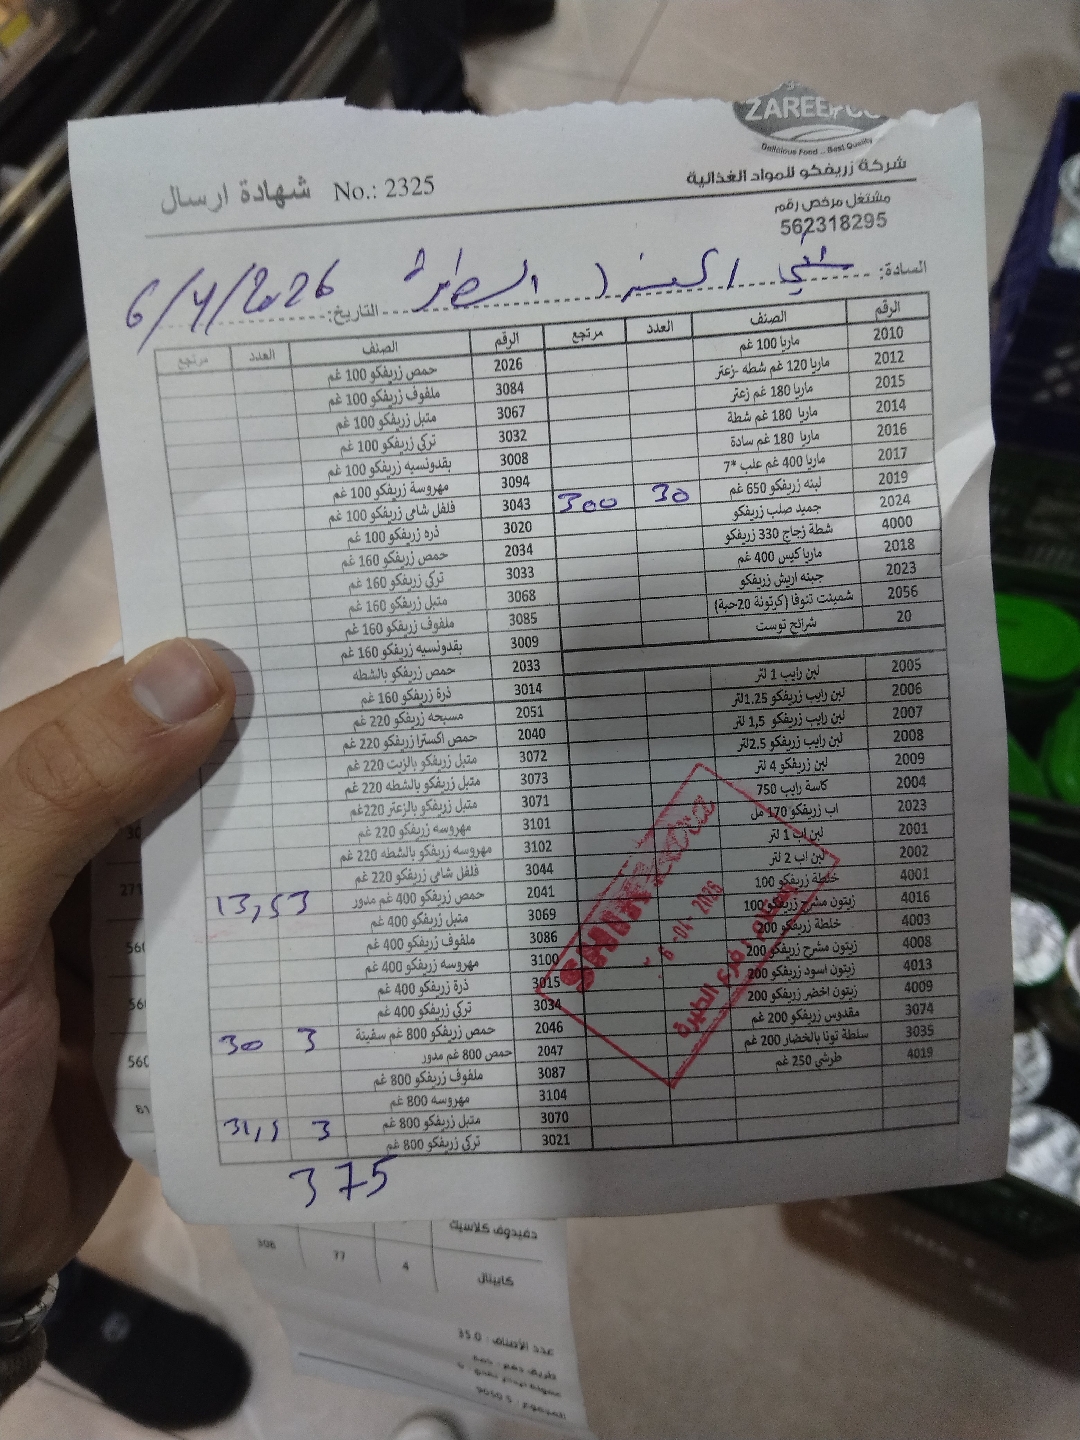 ZAREEFCO
Delicious Food .. Best Quality
شركة زريفكو للمواد الغذائية
شهادة ارسال No.: 2325
مشتغل مرخص رقم
562318295
السادة: سني الطيرة التاريخ: 6/4/2026
الرقم الصنف العدد مرتجع الرقم الصنف العدد مرتجع
2010 ماريا 100 غم 2026 حمص زريفكو 100 غم
2012 ماريا 120 غم شطه -زعتر 3084 ملفوف زريفكو 100 غم
2015 ماريا 180 غم زعتر 3067 متبل زريفكو 100 غم
2014 ماريا 180 غم شطة 3032 تركي زريفكو 100 غم
2016 ماريا 180 غم سادة 3008 بقدونسيه زريفكو 100 غم
2017 ماريا 400 غم علب *7 3094 مهروسة زريفكو 100 غم
2019 لبنه زريفكو 650 غم 30 300 3043 فلفل شامي زريفكو 100 غم
2024 جميد صلب زريفكو 3020 ذره زريفكو 100 غم
4000 شطة زجاج 330 زريفكو 2034 حمص زريفكو 160 غم
2018 ماريا كيس 400 غم 3033 تركي زريفكو 160 غم
2023 جبنه اريش زريفكو 3068 متبل زريفكو 160 غم
2056 شمينت تنوفا (كرتونة 20حبة) 3085 ملفوف زريفكو 160 غم
20 شرائح توست 3009 بقدونسيه زريفكو 160 غم
2033 حمص زريفكو بالشطه
2005 لبن رايب 1 لتر 3014 ذرة زريفكو 160 غم
2006 لبن رايب زريفكو 1.25لتر 2051 مسبحه زريفكو 220 غم
2007 لبن رايب زريفكو 1,5 لتر 2040 حمص اكسترا زريفكو 220 غم
2008 لبن رايب زريفكو 2.5لتر 3072 متبل زريفكو بالزيت 220 غم
2009 لبن زريفكو 4 لتر 3073 متبل زريفكو بالشطه 220 غم
2004 كاسة رايب 750 3071 متبل زريفكو بالزعتر 220غم
2023 اب زريفكو 170 مل 3101 مهروسه زريفكو 220 غم
2001 لبن اب 1 لتر 3102 مهروسه زريفكو بالشطه 220 غم
2002 لبن اب 2 لتر 3044 فلفل شامي زريفكو 220 غم
4001 خلطة زريفكو 100 2041 حمص زريفكو 400 غم مدور 3 13,5
4016 زيتون مشرح زريفكو 100 3069 متبل زريفكو 400 غم
4003 خلطة زريفكو 200 3086 ملفوف زريفكو 400 غم
4008 زيتون مشرح زريفكو 200 3100 مهروسه زريفكو 400 غم
4013 زيتون اسود زريفكو 200 3015 ذرة زريفكو 400 غم
4009 زيتون اخضر زريفكو 200 3034 تركي زريفكو 400 غم
3074 مقدوس زريفكو 200 غم 2046 حمص زريفكو 800 غم سفينة 3 30
3035 سلطة تونا بالخضار 200 غم 2047 حمص 800 غم مدور
4019 طرشي 250 غم 3087 ملفوف زريفكو 800 غم
3104 مهروسه 800 غم
3070 متبل زريفكو 800 غم 3 31,5
3021 تركي زريفكو 800 غم
375
6 -04- 2026
فرع الطيرة
دفيدوف كلاسيك
كابيتال 4 77 308
عدد الأصناف : 35.0